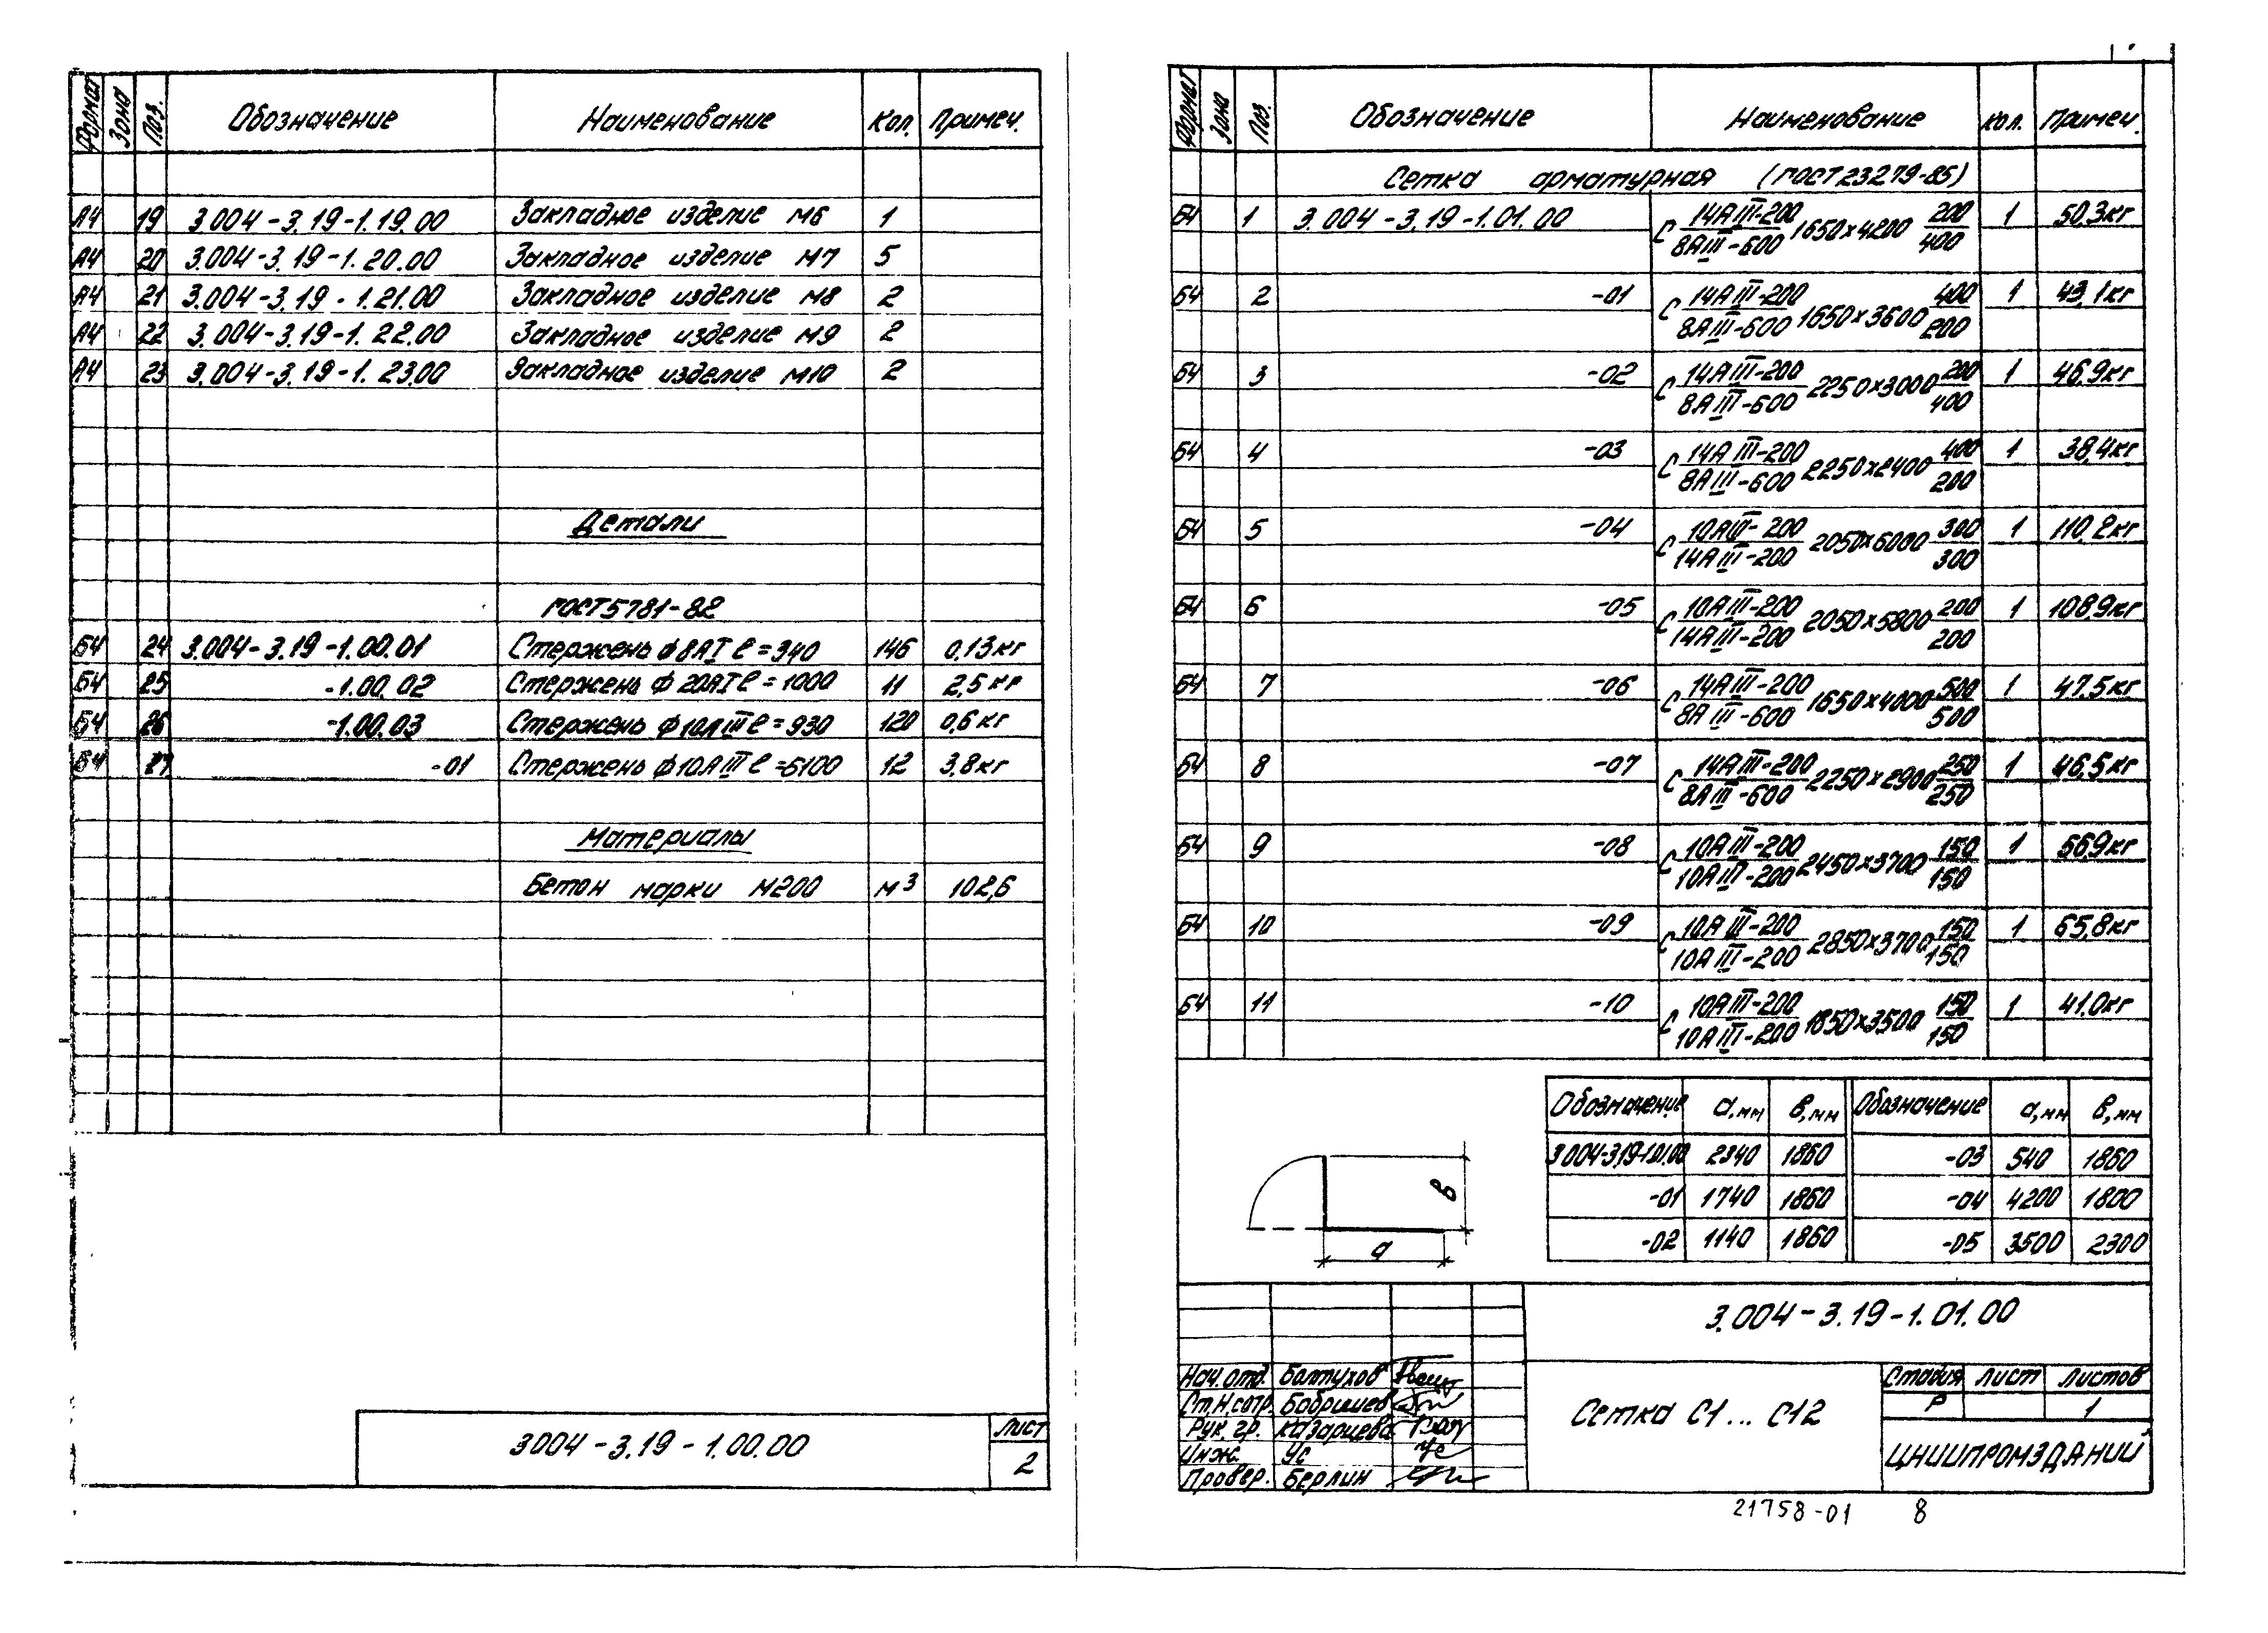 Формат Зона Поз. Обозначение Наименование Кол. Примеч.
А4 19 3.004-3.19-1.19.00 Закладное изделие М6 1
А4 20 3.004-3.19-1.20.00 Закладное изделие М7 5
А4 21 3.004-3.19-1.21.00 Закладное изделие М8 2
А4 22 3.004-3.19-1.22.00 Закладное изделие М9 2
А4 23 3.004-3.19-1.23.00 Закладное изделие М10 2
Детали
ГОСТ 5781-82
Б4 24 3.004-3.19-1.00.01 Стержень ф8АI ℓ=340 146 0,13кг
Б4 25 -1.00.02 Стержень ф20АI ℓ=1000 11 2,5кг
Б4 26 -1.00.03 Стержень ф10АIII ℓ=930 120 0,6кг
Б4 27 -01 Стержень ф10АIII ℓ=6100 12 3,8кг
Материалы
Бетон марки М200 м³ 102,6
3.004-3.19-1.00.00
Лист
2
Формат Зона Поз. Обозначение Наименование Кол. Примеч.
Сетка арматурная (ГОСТ 23279-85)
Б4 1 3.004-3.19-1.01.00 С 14АIII-200/8АIII-600 1650×4200 200/400 1 50,3кг
Б4 2 -01 С 14АIII-200/8АIII-600 1650×3600 400/200 1 43,1кг
Б4 3 -02 С 14АIII-200/8АIII-600 2250×3000 200/400 1 46,9кг
Б4 4 -03 С 14АIII-200/8АIII-600 2250×2400 400/200 1 38,4кг
Б4 5 -04 С 10АIII-200/14АIII-200 2050×6000 300/300 1 110,2кг
Б4 6 -05 С 10АIII-200/14АIII-200 2050×5800 200/200 1 108,9кг
Б4 7 -06 С 14АIII-200/8АIII-600 1650×4000 500/500 1 47,5кг
Б4 8 -07 С 14АIII-200/8АIII-600 2250×2900 250/250 1 46,5кг
Б4 9 -08 С 10АIII-200/10АIII-200 2450×3700 150/150 1 56,9кг
Б4 10 -09 С 10АIII-200/10АIII-200 2850×3700 150/150 1 65,8кг
Б4 11 -10 С 10АIII-200/10АIII-200 1850×3500 150/150 1 41,0кг
Обозначение а,мм в,мм Обозначение а,мм в,мм
3.004-3.19-1.01.00 2340 1860 -03 540 1860
-01 1740 1860 -04 4200 1800
-02 1140 1860 -05 3500 2300
в
а
3.004-3.19-1.01.00
Нач.отд. Болтухов
Ст.н.сотр. Бобришев
Рук.гр. Казариева
Инж. Ус
Провер. Берлин
Сетка С1...С12
Стадия Лист Листов
Р 1
ЦНИИПРОМЗДАНИЙ
21758-01 8